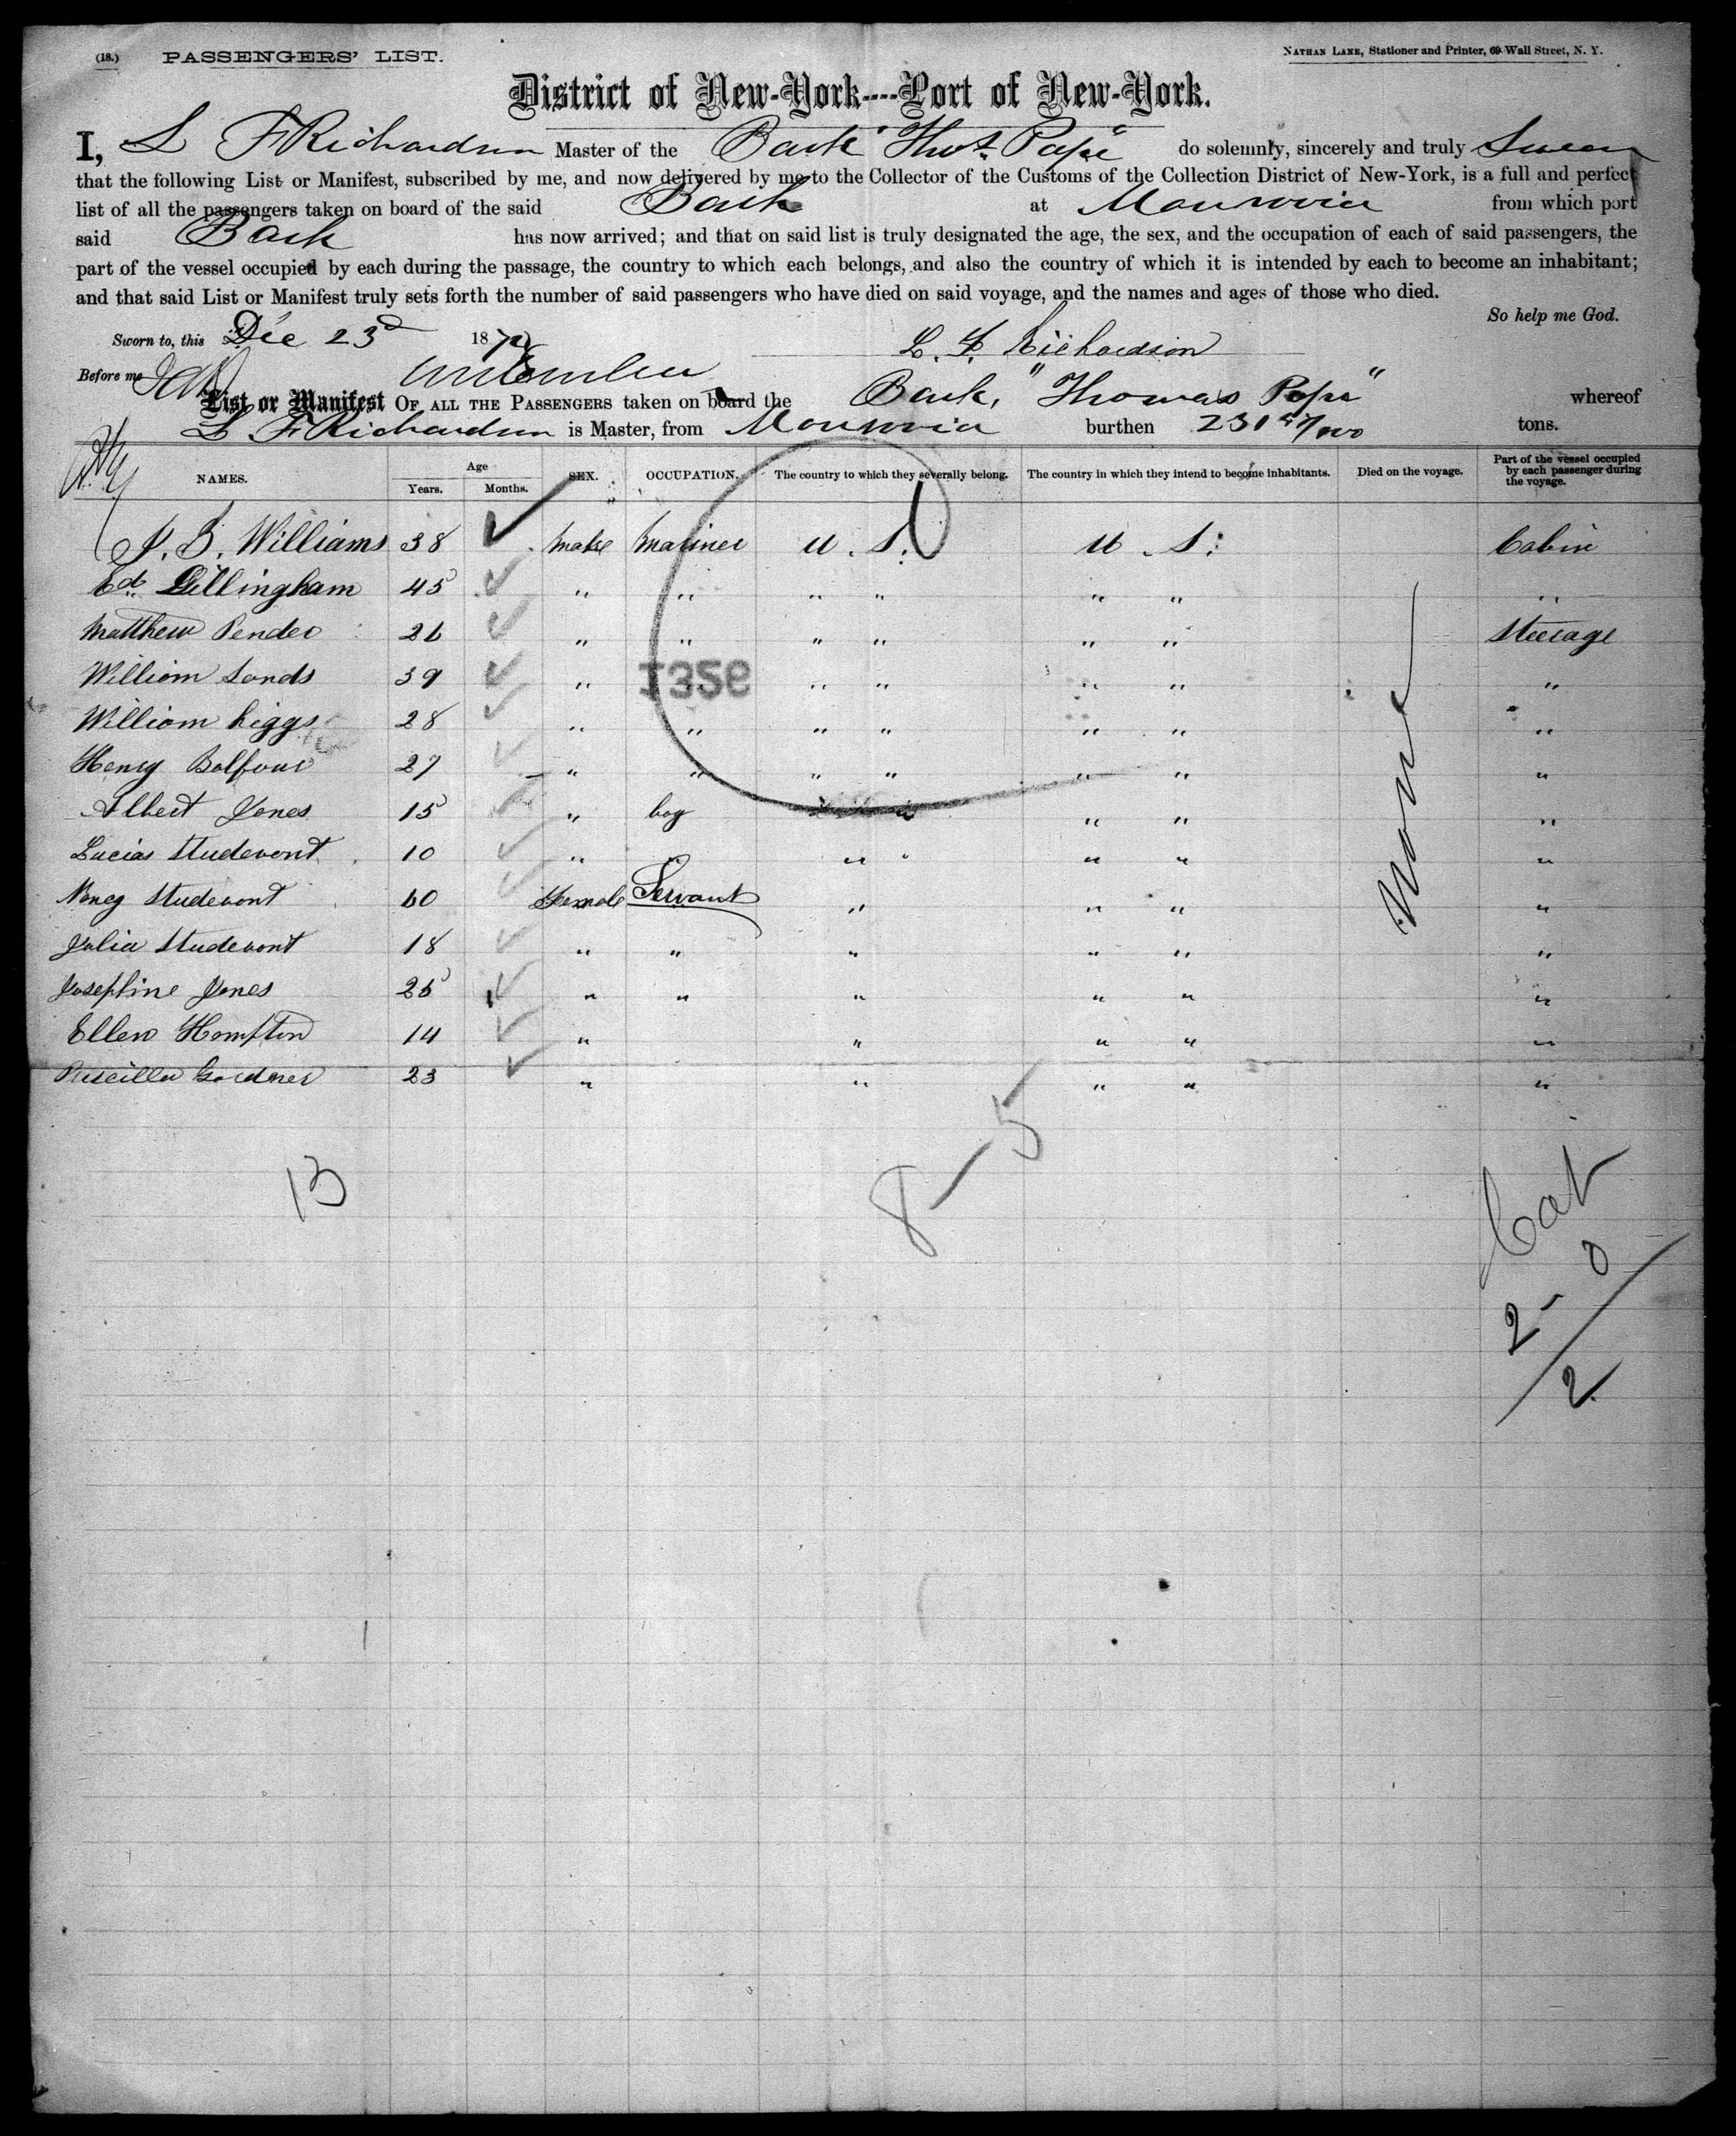 (18.) PASSENGERS' LIST. NATHAN LANE, Stationer and Printer, 69 Wall Street, N. Y.
District of New-York----Port of New-York.
I, L F Richardson Master of the Bark Thos. Pope do solemnly, sincerely and truly Swear
that the following List or Manifest, subscribed by me, and now delivered by me to the Collector of the Customs of the Collection District of New-York, is a full and perfect
list of all the passengers taken on board of the said Bark at Monrovia from which port
said Bark has now arrived; and that on said list is truly designated the age, the sex, and the occupation of each of said passengers, the
part of the vessel occupied by each during the passage, the country to which each belongs, and also the country of which it is intended by each to become an inhabitant;
and that said List or Manifest truly sets forth the number of said passengers who have died on said voyage, and the names and ages of those who died.
So help me God.
Sworn to, this Dec 23d 187
L. F. Richardson
Before me
List or Manifest OF ALL THE PASSENGERS taken on board the Bark, "Thomas Pope" whereof
L F Richardson is Master, from Monrovia burthen 231 tons.
NAMES. Age Years. Months. SEX. OCCUPATION. The country to which they severally belong. The country in which they intend to become inhabitants. Died on the voyage. Part of the vessel occupied by each passenger during the voyage.
J. B. Williams 38 male mariner U. S. U. S. Cabin
Ed. Gillingham 45 " " " " " " "
Matthew Pender 26 " " " " " " Steerage
William Sands 39 " " " " " " "
1358
William Riggs 28 " " " " " " "
Henry Balfour 27 " " " " " " "
Albert Jones 15 " boy " " " " "
Lucias Studevont 10 " " " " " "
Nancy Studevont 60 Female Servant " " " "
Julia Studevont 18 " " " " " "
Josephine Jones 25 " " " " " "
Ellen Hampton 14 " " " " "
Priscilla Gardner 23 " " " " "
None
13
8-5
Cab
2-0
2